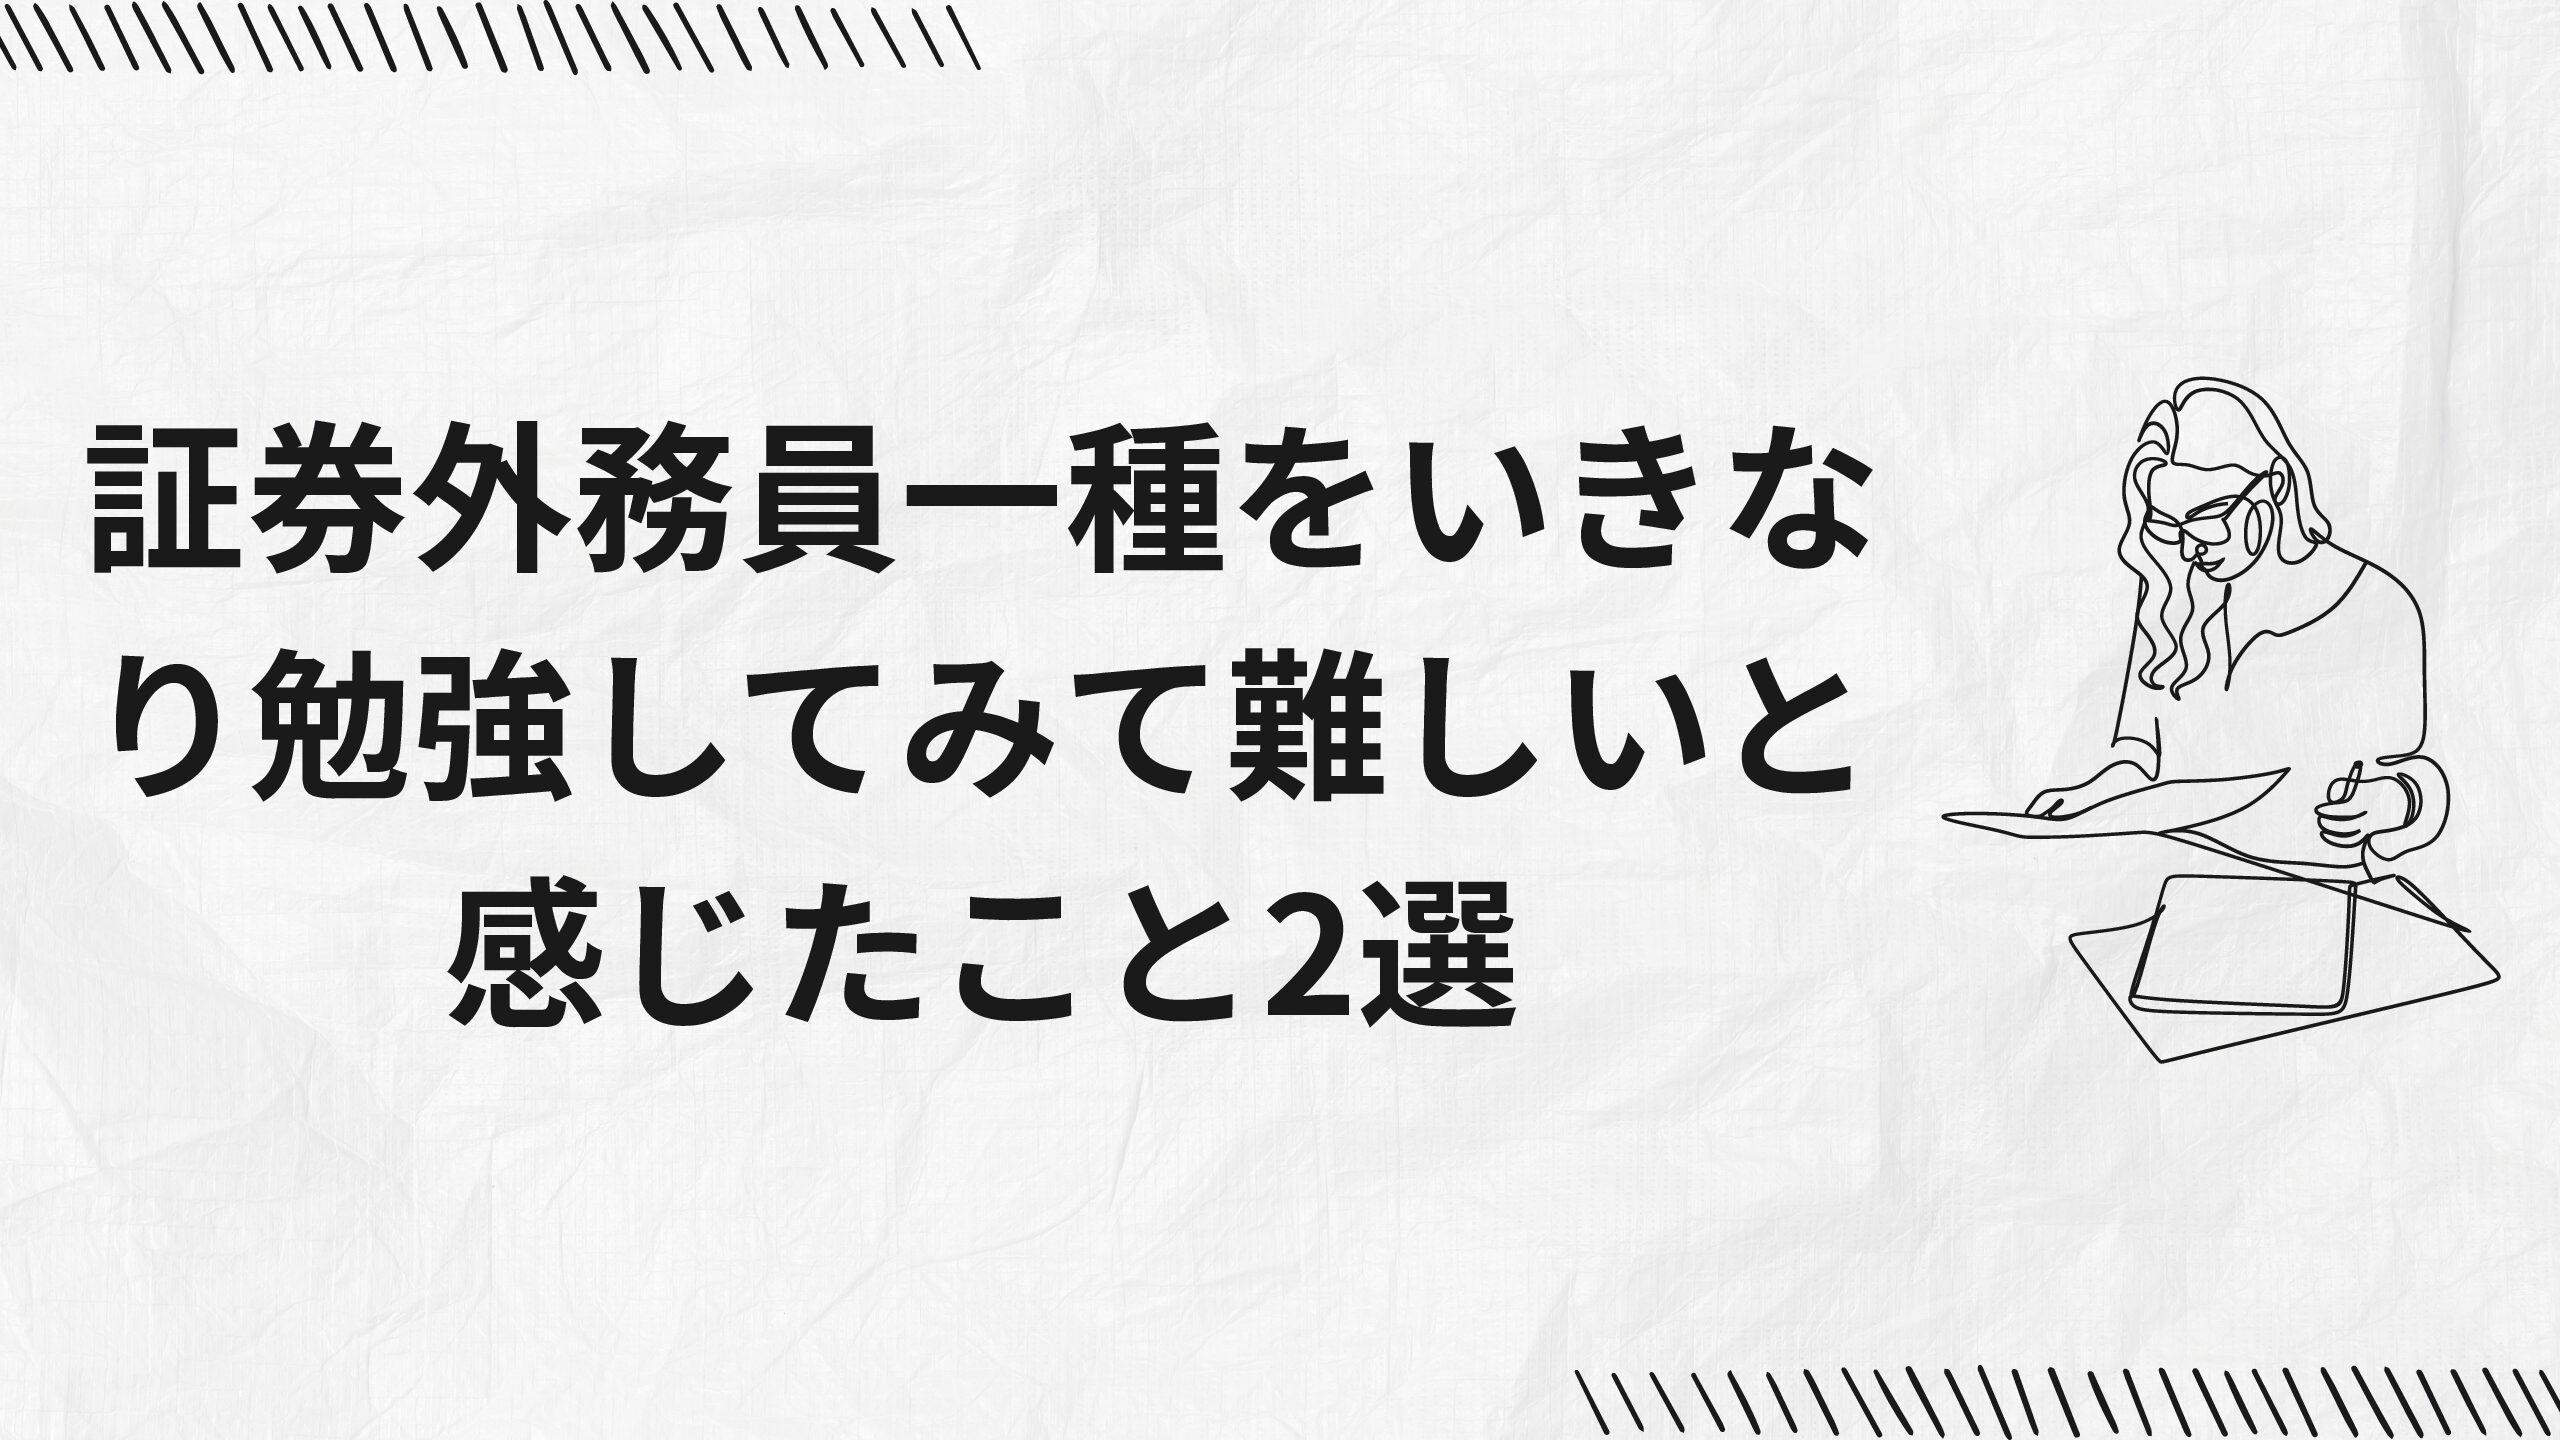 証券外務員一種をいきな
り勉強してみて難しいと
感じたこと2選